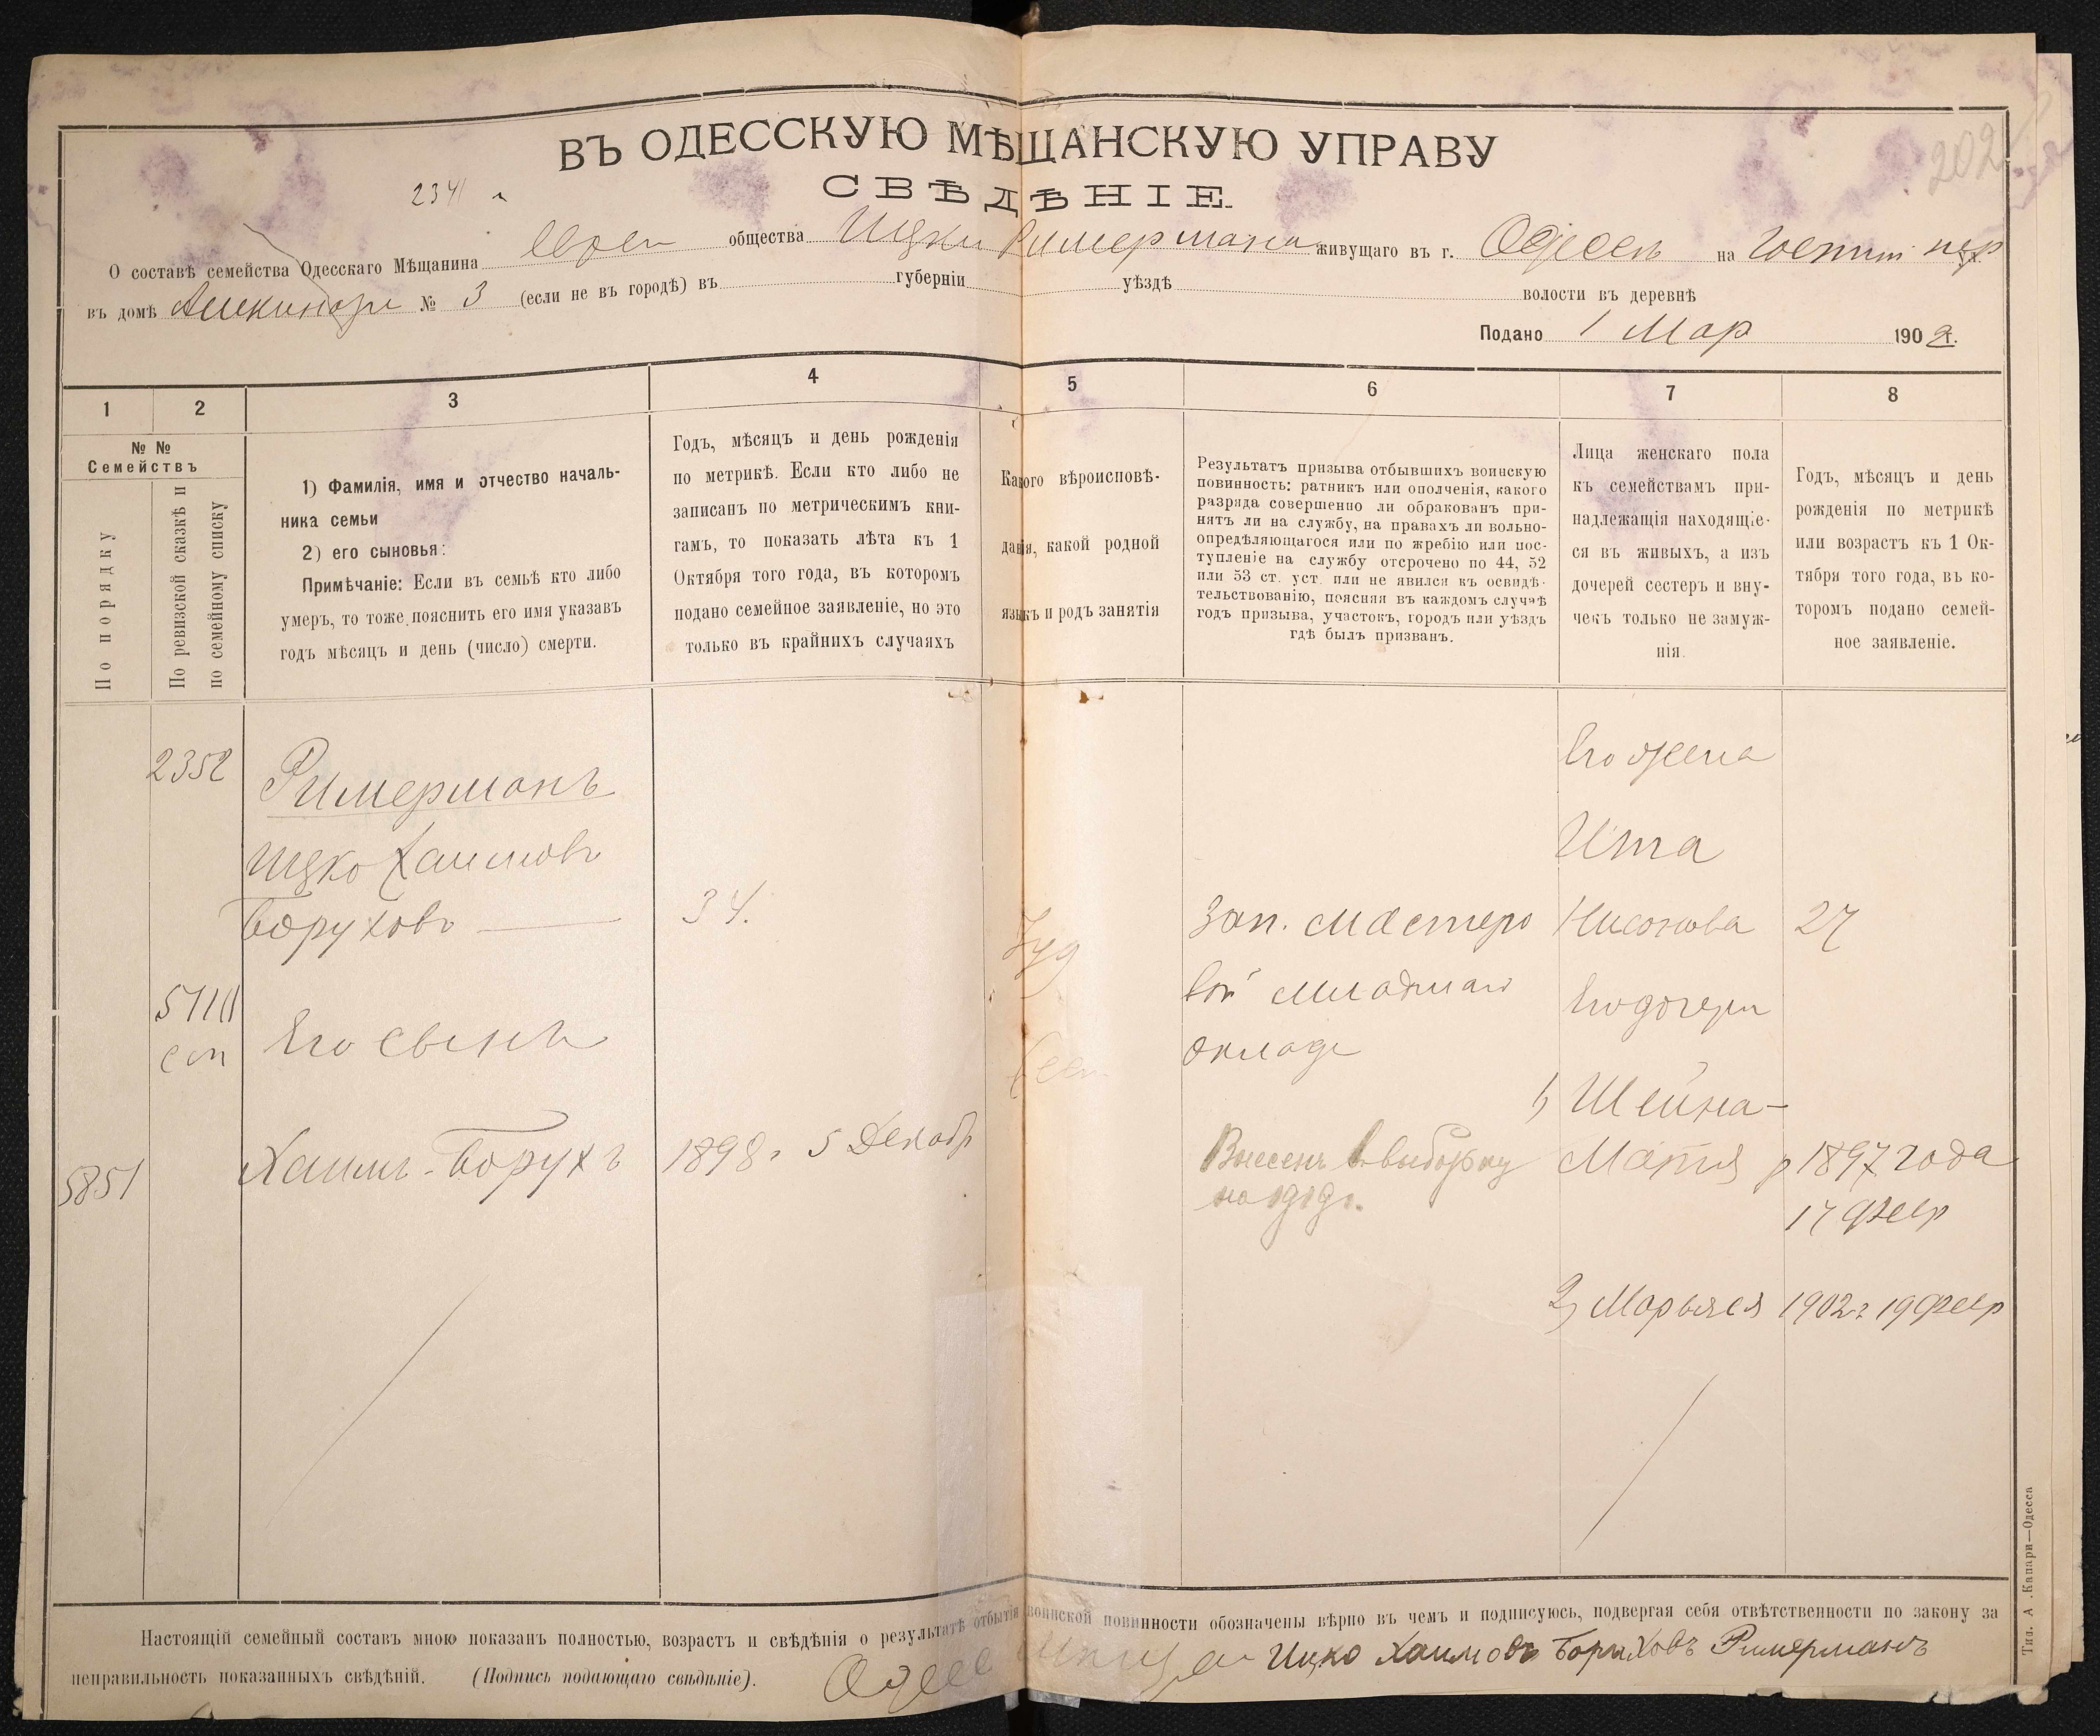 ВЪ ОДЕССКУЮ МѢЩАНСКУЮ УПРАВУ
202
СВѢДѢНІЕ.
О составѣ семейства Одесскаго Мѣщанина общества Ицки Римермана живущаго въ г. Одессѣ на Госпит пер ул.
въ домѣ Ашкинази № 3 (если не въ городѣ) въ губерніи уѣздѣ волости въ деревнѣ
Подано 1 Мар 1902 г.
1 2 3 4 5 6 7 8
№ №
Семействъ
По порядку
По ревизской сказкѣ и
по семейному списку
1) Фамилія, имя и отчество началь-
ника семьи
2) его сыновья:
Примѣчаніе: Если въ семьѣ кто либо
умеръ, то тоже пояснить его имя указавъ
годъ мѣсяцъ и день (число) смерти.
Годъ, мѣсяцъ и день рожденія
по метрикѣ. Если кто либо не
записанъ по метрическимъ кни-
гамъ, то показать лѣта къ 1
Октября того года, въ которомъ
подано семейное заявленіе, но это
только въ крайнихъ случаяхъ
Какого вѣроисповѣ-
данія, какой родной
языкъ и родъ занятія
Результатъ призыва отбывшихъ воинскую
повинность: ратникъ или ополченія, какого
разряда совершенно ли обракованъ при-
нятъ ли на службу, на правахъ ли вольно-
опредѣляющагося или по жребію или пос-
тупленіе на службу отсрочено по 44, 52
или 53 ст. уст. или не явился къ освидѣ-
тельствованію, поясняя въ каждомъ случаѣ
годъ призыва, участокъ, городъ или уѣздъ
гдѣ былъ призванъ.
Лица женскаго пола
къ семействамъ при-
надлежащія находящіе-
ся въ живыхъ, а изъ
дочерей сестеръ и вну-
чекъ только не замуж-
нія.
Годъ, мѣсяцъ и день
рожденія по метрикѣ
или возрастъ къ 1 Ок-
тября того года, въ ко-
торомъ подано семей-
ное заявленіе.
2352
Римерманъ
Ицко Хаимовъ
Боруховъ 34.
Іуд
Зап. мастеро
вой младшаго
оклада
Его жена
Ита
Нисонова 27
Его сынъ
Его дочери
1) Шейна-
Матля р 1897 года
17 Февр
5851
Хаимъ-Борухъ 1898 г 5 Декабр
Внесенъ въ выборку
на 1919 г.
2) Марьяся 1902 г 19 Февр
Настоящій семейный составъ мною показанъ полностью, возрастъ и свѣдѣнія о результатѣ отбытія воинской повинности обозначены вѣрно въ чемъ и подписуюсь, подвергая себя отвѣтственности по закону за
неправильность показанныхъ свѣдѣній. (Подпись подающаго свѣдѣніе). Ицко Хаимовъ Боруховъ Римерманъ
Тип. А. Капари—Одесса